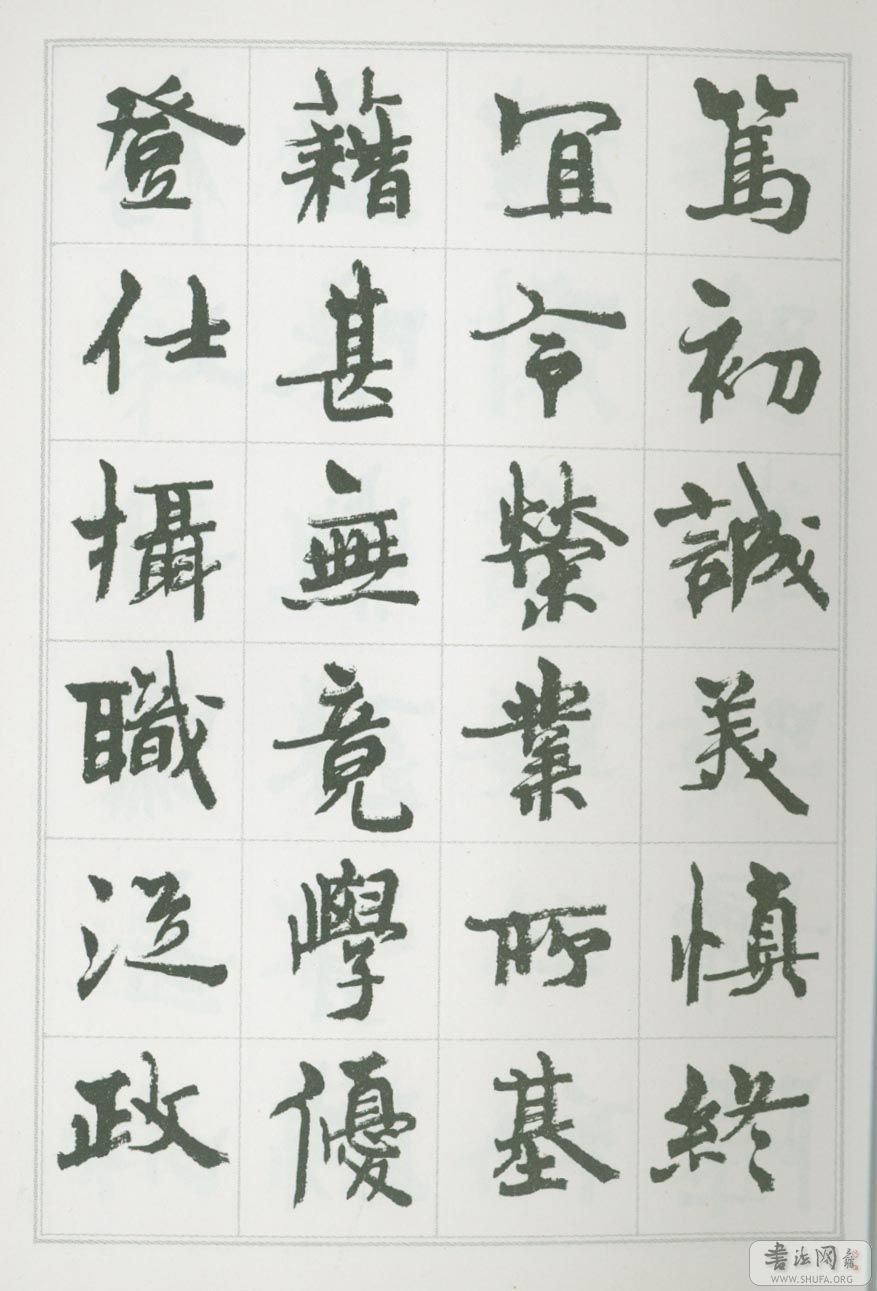 篤初誠美慎終
宜令榮業所基
藉甚無竟學優
登仕攝職從政
書法网
WWW.SHUFA.ORG